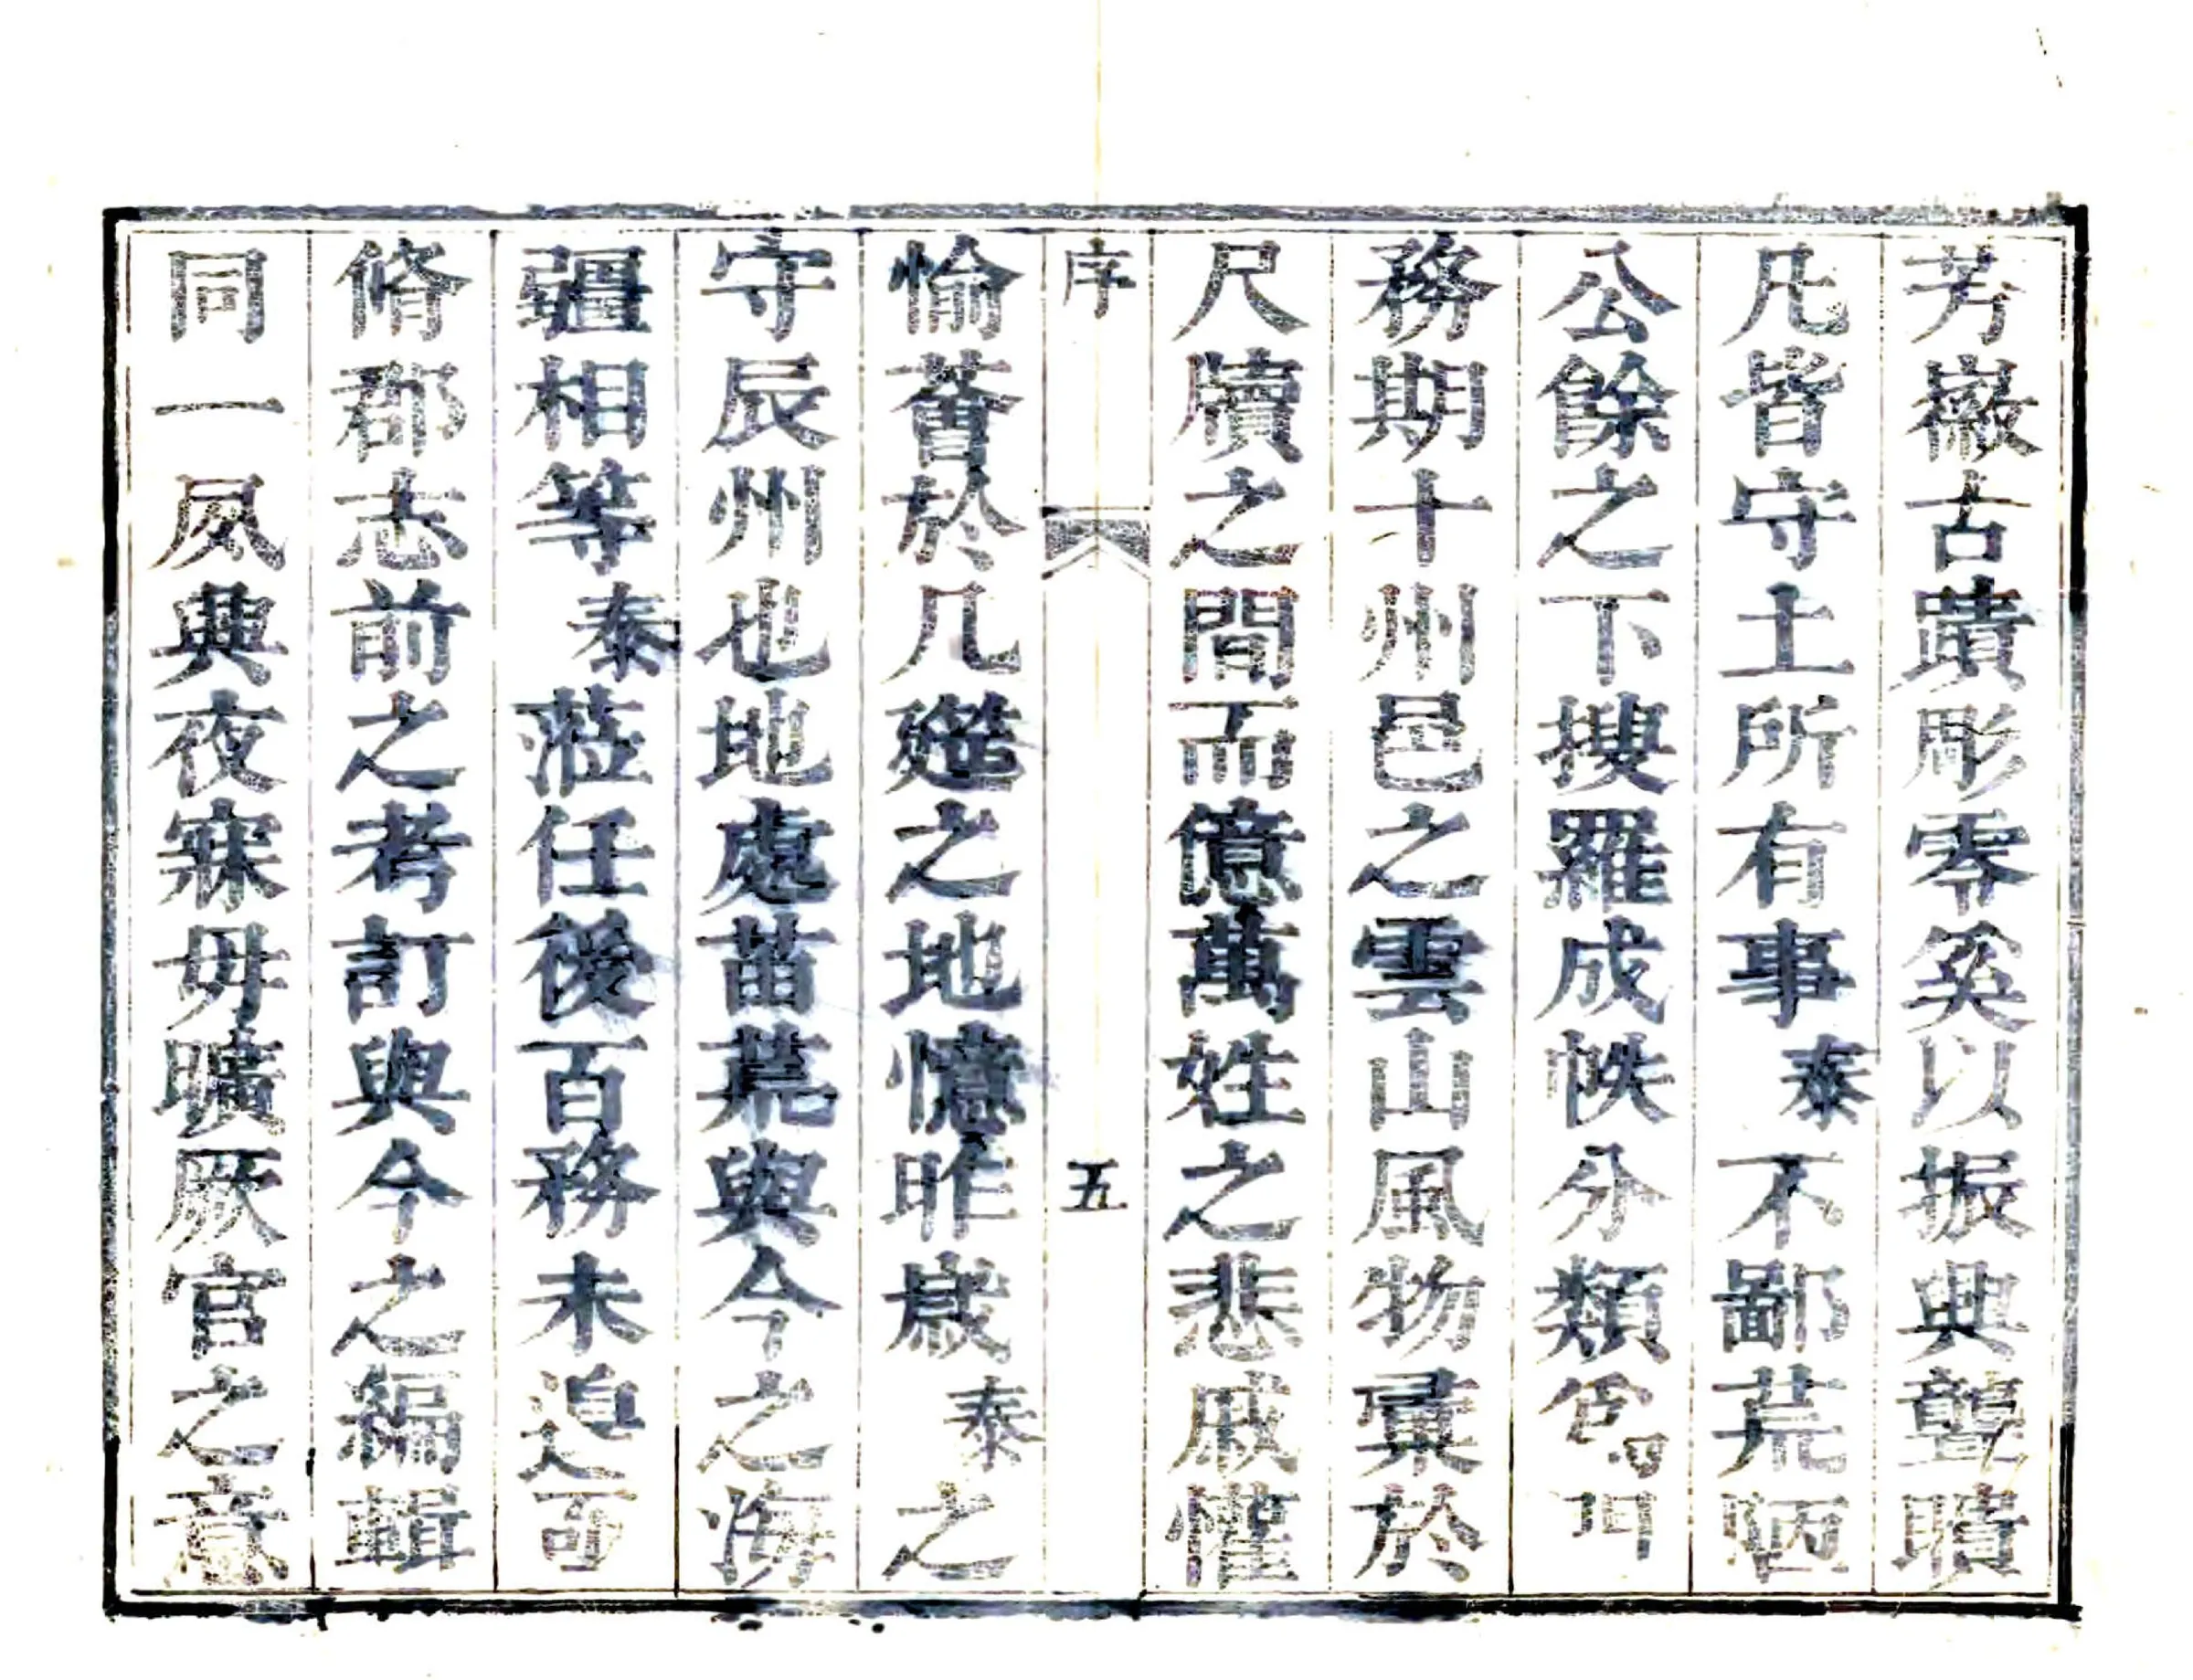 芳巖古蹟彫零奚以振興聾瞶
凡皆守土所有事泰不鄙荒陋
公餘之下搜羅成帙分類
務期十州邑之雲山風物彚於
尺牘之間而億萬姓之悲戚懽
序 五
愉薈於几筵之地憶昨歲泰之
守辰州也地處苗荒與今之海
疆相等泰蒞任後百務未遑可
脩郡志前之考訂與今之編輯
同一夙興夜寐毋曠厥官之意